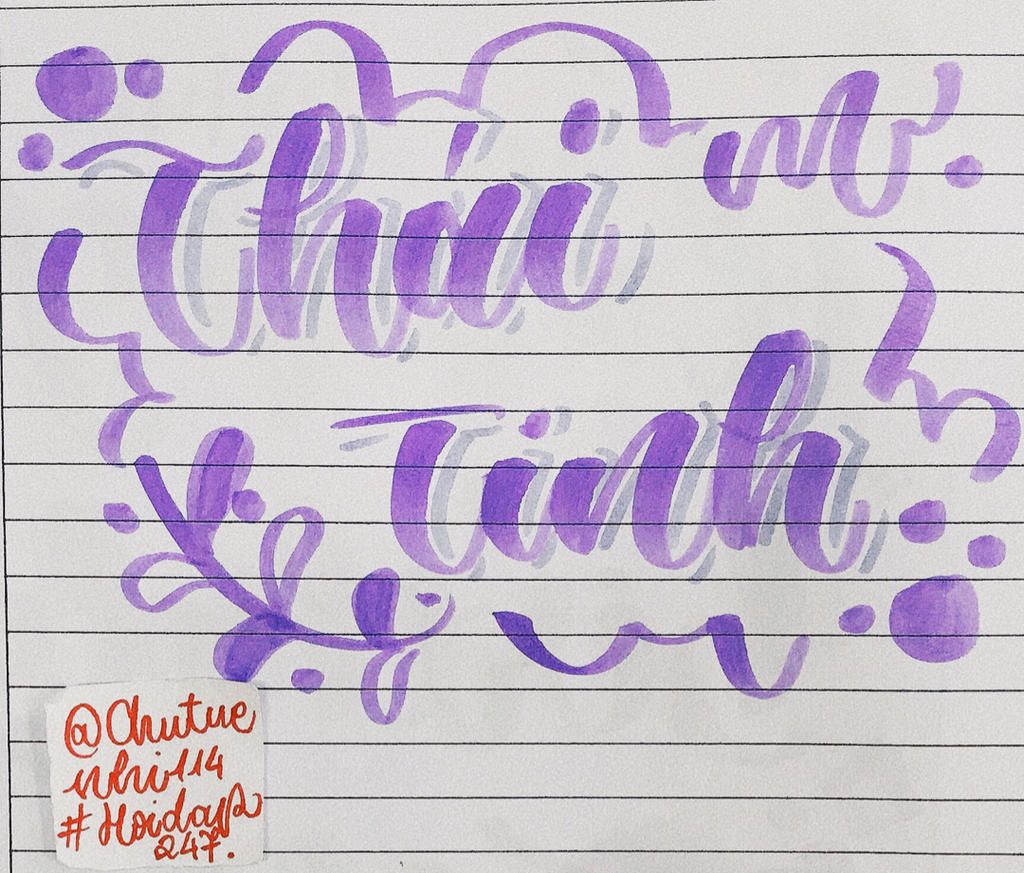 Thái
Tinh
@Chutue
nhi114
#Hoidap
247.